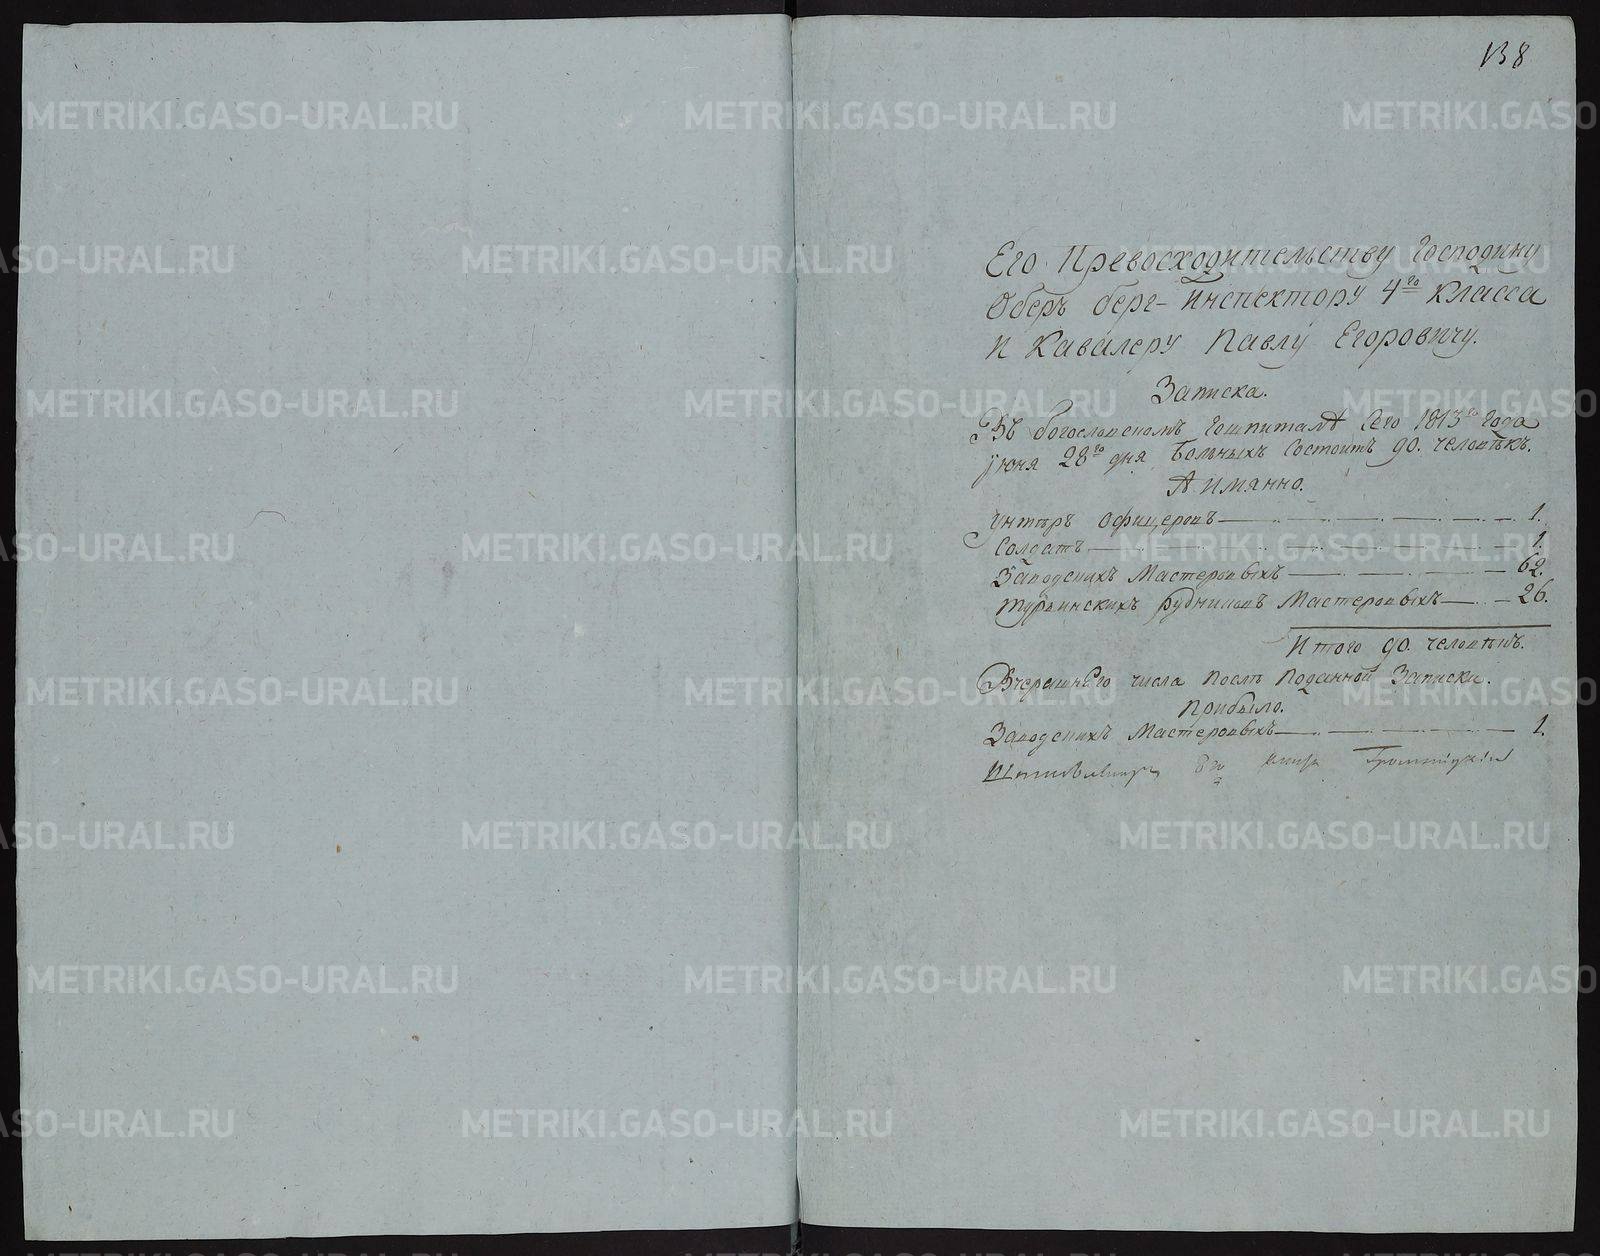 138
Его Превосходительству Господину
Оберъ берг-инспектору 4го класса
и Кавалеру Павлу Егоровичу.
Записка.
Въ богословскомъ гошпиталѣ сего 1813го года
июня 28го дня больныхъ состоитъ 90. человѣкъ.
А имянно.
унтеръ офицеровъ 1.
Солдатъ 1.
Заводскихъ Мастеровыхъ 62.
турьинскихъ рудниковъ Мастеровыхъ 26.
Итого 90. человѣкъ.
Вчерашняго числа послѣ поданной записки.
прибыло.
Заводскихъ Мастеровыхъ 1.
METRIKI.GASO-URAL.RU